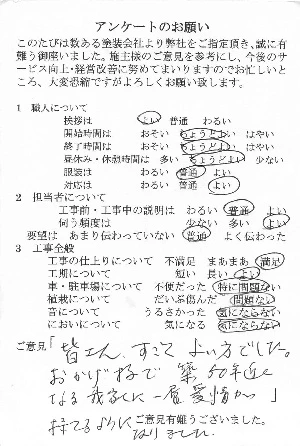 アンケートのお願い
このたびは数ある塗装会社より弊社をご指定頂き、誠に有
難う御座いました。施主様のご意見を参考にし、今後のサ
ービス向上・経営改善に努めてまいりますのでお忙しいと
ころ、大変恐縮ですがよろしくお願い致します。
1 職人について
挨拶は よい 普通 わるい
開始時間は おそい ちょうどよい はやい
終了時間は おそい ちょうどよい はやい
昼休み・休憩時間は 多い ちょうどよい 少ない
服装は わるい 普通 よい
対応は わるい 普通 よい
2 担当者について
工事前・工事中の説明は わるい 普通 よい
伺う頻度は 少ない 多い よい
要望は あまり伝わっていない 普通 よく伝わった
3 工事全般
工事の仕上りについて 不満足 まあまあ 満足
工期について 短い 長い よい
車・駐車場について 不便だった 特に問題ない
植栽について だいぶ傷んだ 問題ない
音について うるさかった 気にならない
においについて 気になる 気にならない
ご意見「皆さん、すごくよい方でした。
おかげ様で 築50年近く
なる我家に一層愛情が」
持てるように ご意見有難うございました。
なりました